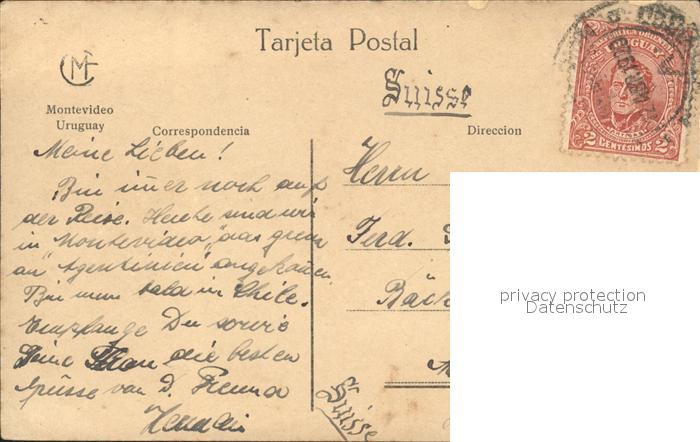 Tarjeta Postal
CM
Montevideo
Uruguay
Correspondencia
Direccion
Suisse
REPUBLICA ORIENTAL
URUGUAY
2 CENTESIMOS 2
Meine Lieben!
Bin imer noch auf
der Reise. Heute sind wir
in Montevideo, das grenz
an "Agentinien" angekomen.
Bin nun bald in Chile.
Empfange Du sowie
Deine Frau die besten
Grüsse von D. Freund
Herrn
Ferd.
Bäck
Suisse
privacy protection
Datenschutz